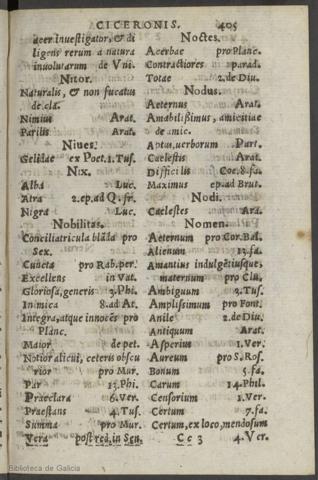 CICERONIS. 405
acer Inuestigator, & di
ligens rerum a natura
inuolutarum de Vni.
Nitor.
Naturalis, & non fucatus
de cla.
Nimius Arat.
Parilis Arat.
Niues.
Gelidae ex Poet. 1. Tus.
Nix.
Alba Luc.
Atra 2. ep. ad Q. fr.
Nigra Luc.
Nobilitas.
Conciliatricula blãda pro
Sex.
Cuncta pro Rab. per.
Excellens in Vat.
Gloriosa, generis 2. Phi.
Inimica 8. ad At.
Integra, atque innocẽs pro
Planc.
Maior de pet.
Notior alicui, ceteris obscu
rior pro Mur.
Par 13. Phi.
Praeclara 6. Ver.
Praestans 4. Tus.
Summa pro Mur.
Vera post red. in Sen.
Noctes.
Acerbae pro Planc.
Contractiores parad.
Totae 2. de Diu.
Nodus.
Aeternus Arat.
Amabilissimus, amicitiae
de amic.
Aptus, uerborum Part.
Caelestis Arat.
Difficilis Coe. 8. fa.
Maximus ep. ad Brut.
Nodi.
Caelestes Ara.
Nomen.
Aeternum pro Cor. Bal.
Alienum 13. fa.
Amantius indulgẽtiusque,
maternum pro Clu.
Ambiguum 2. Tus.
Amplissimum pro Font.
Anile 2. de Diu.
Antiquum Arat.
Asperius 1. Ver.
Aureum pro S. Ros.
Bonum 5. fa.
Carum 14. Phil.
Censorium 1. Ver.
Certum 7. fa.
Certum, ex loco, mendosum
Cc 3 4. Ver.
Biblioteca de Galicia